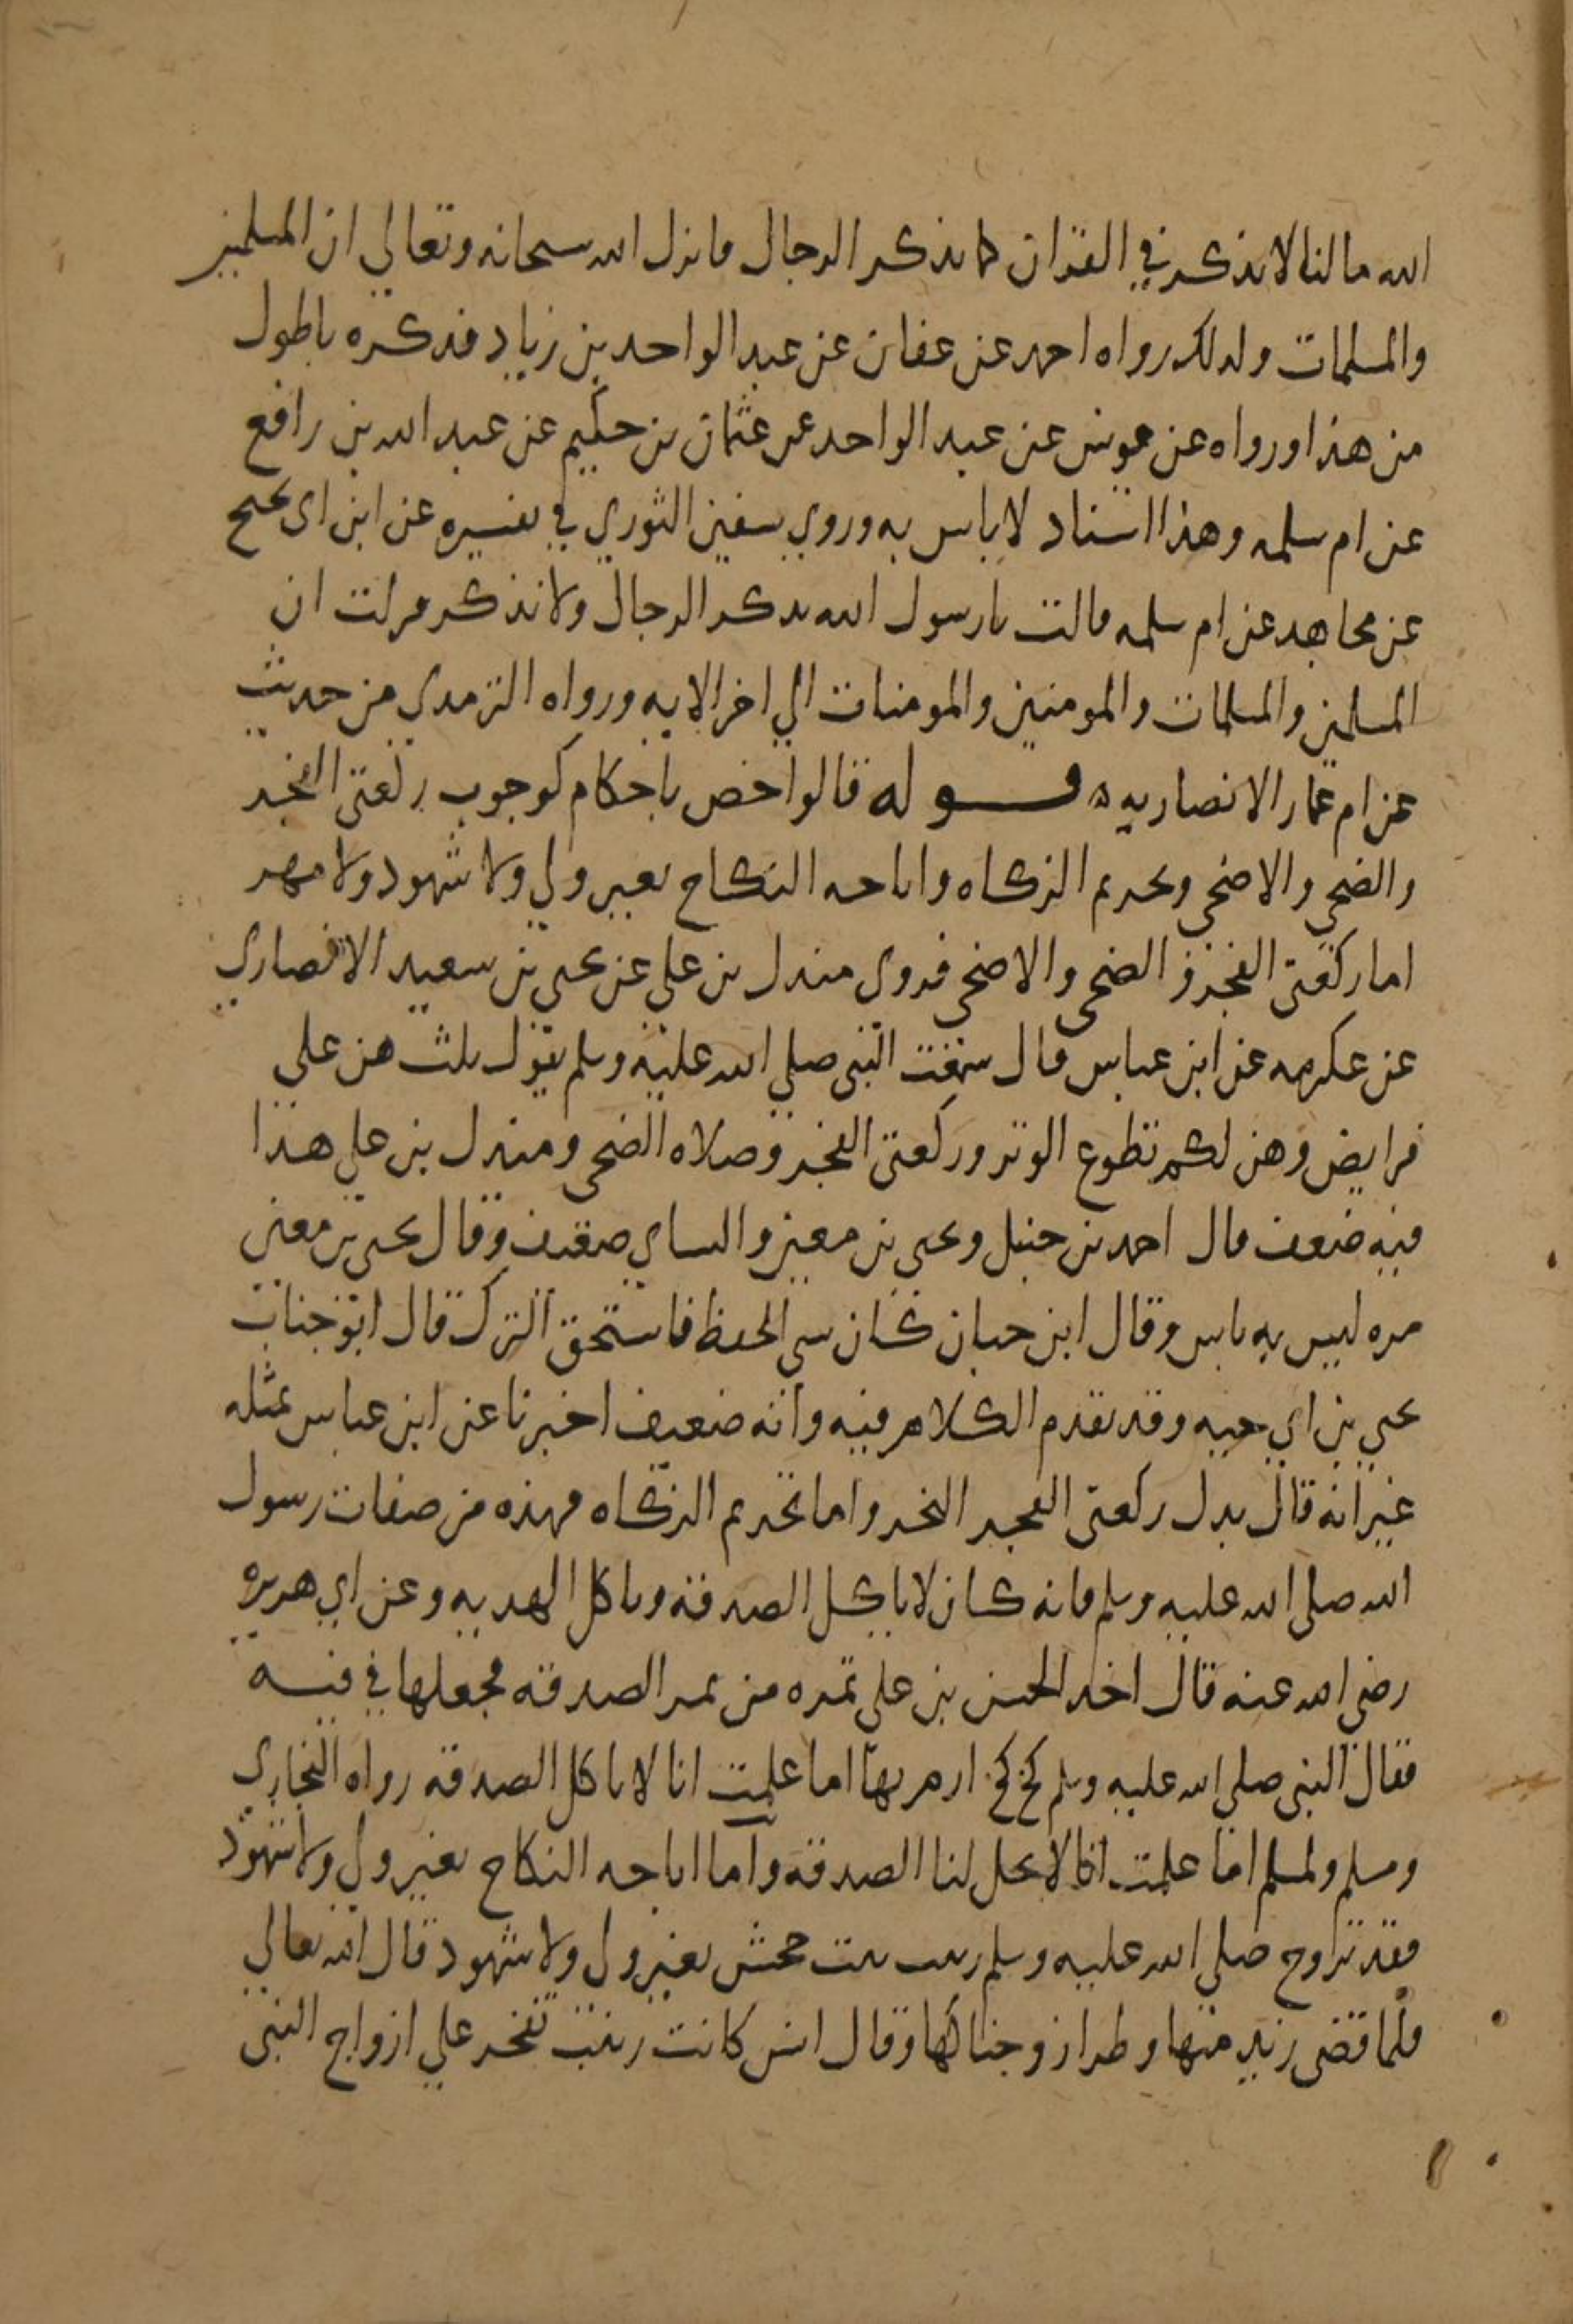 الله مالنا لا نذكر في القران كما يذكر الرجال فانزل الله سبحانه وتعالي ان المسلمين
والمسلمات ولذلك رواه احمد عن عفان عن عبد الواحد بن زياد فذكره باطول
من هذا ورواه عن يونس عن عبد الواحد عن عثمان بن حكيم عن عبد الله بن رافع
عن ام سلمه وهذا اسناد لا باس به وروي سفين الثوري في تفسيره عن ابن ابي نجيح
عن مجاهد عن ام سلمه قالت يا رسول الله يذكر الرجال ولا نذكر فنزلت ان
المسلمين والمسلمات والمومنين والمومنات الي اخر الايه ورواه الترمذي من حديث
عن ام عمار الانصاريه ه قوله قالوا خص باحكام كوجوب ركعتي الفجر
والضحي والاضحي وتحريم الزكاه واباحه النكاح بغير ولي ولا شهود ولا مهر
اما ركعتي الفجر و الضحي والاضحي فروي مندل بن علي عن يحيي بن سعيد الانصاري
عن عكرمه عن ابن عباس قال سمعت النبي صلي الله عليه وسلم يقول ثلث هن علي
فرايض وهن لكم تطوع الوتر وركعتي الفجر وصلاه الضحي ومندل بن علي هذا
فيه ضعف قال احمد بن حنبل ويحيي بن معين والنساي ضعيف وقال يحيي بن معين
مره ليس به باس وقال ابن حبان كان سي الحفظ فاستحق الترك قال ابو جناب
يحيي بن ابي حيه وقد تقدم الكلام فيه وانه ضعيف اخبرنا عن ابن عباس بمثله
غير انه قال بدل ركعتي الفجر النحر واما تحريم الزكاه فهذه من صفات رسول
الله صلي الله عليه وسلم فانه كان لا ياكل الصدقه وياكل الهديه وعن ابي هريره
رضي الله عنه قال اخذ الحسن بن علي تمره من تمر الصدقه فجعلها في فيه
فقال النبي صلي الله عليه وسلم كخ كخ ارم بها اما علمت انا لا ناكل الصدقه رواه البخاري
ومسلم ولمسلم اما علمت انا لا تحل لنا الصدقه واما اباحه النكاح بغير ولي ولا شهود
فقد تزوج صلي الله عليه وسلم زينب بنت جحش بغير ولي ولا شهود قال الله تعالي
فلما قضي زيد منها وطرا زوجناكها وقال انس كانت زينب تفخر علي ازواج النبي